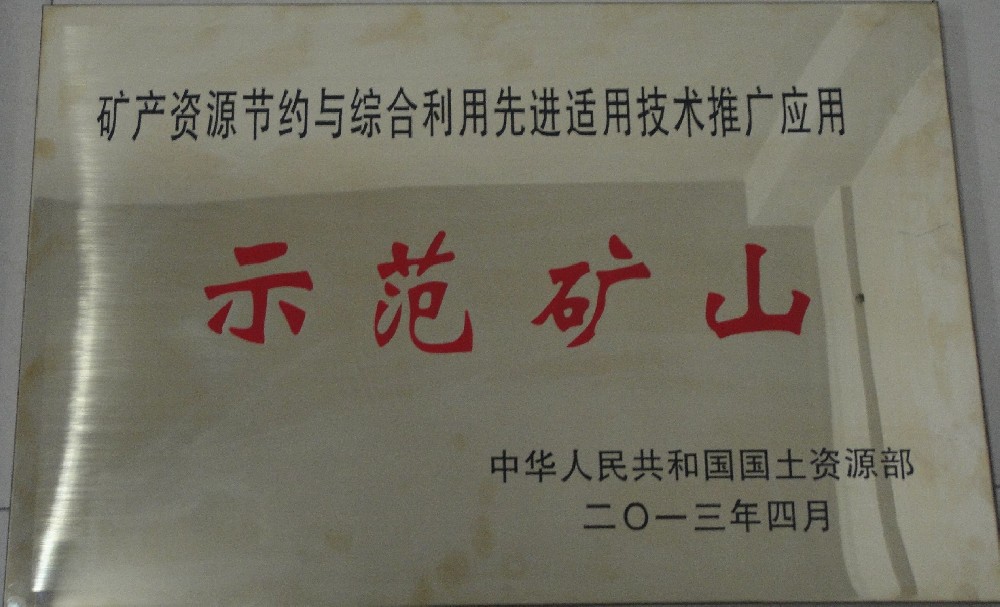 矿产资源节约与综合利用先进适用技术推广应用
示范矿山
中华人民共和国国土资源部
二〇一三年四月